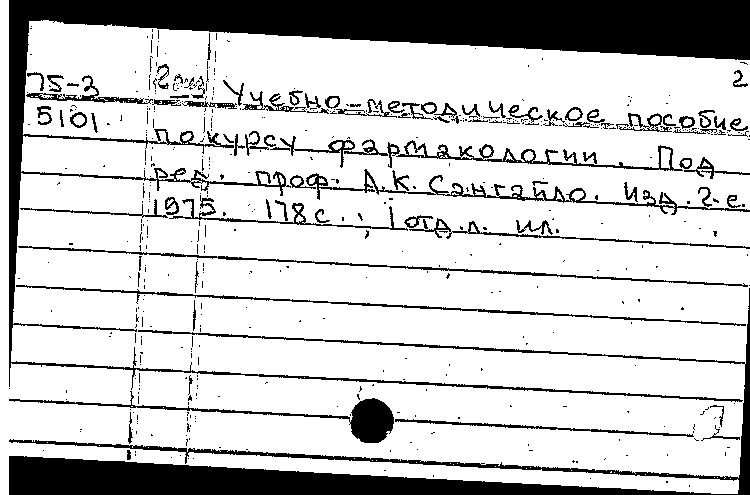 2
75-3 2 экз Учебно-методическое пособие
5101. по курсу фармакологии. Под
ред. проф. А.К. Сангайло. Изд. 2-е.
1975. 178с.; 1 отд.л. ил.